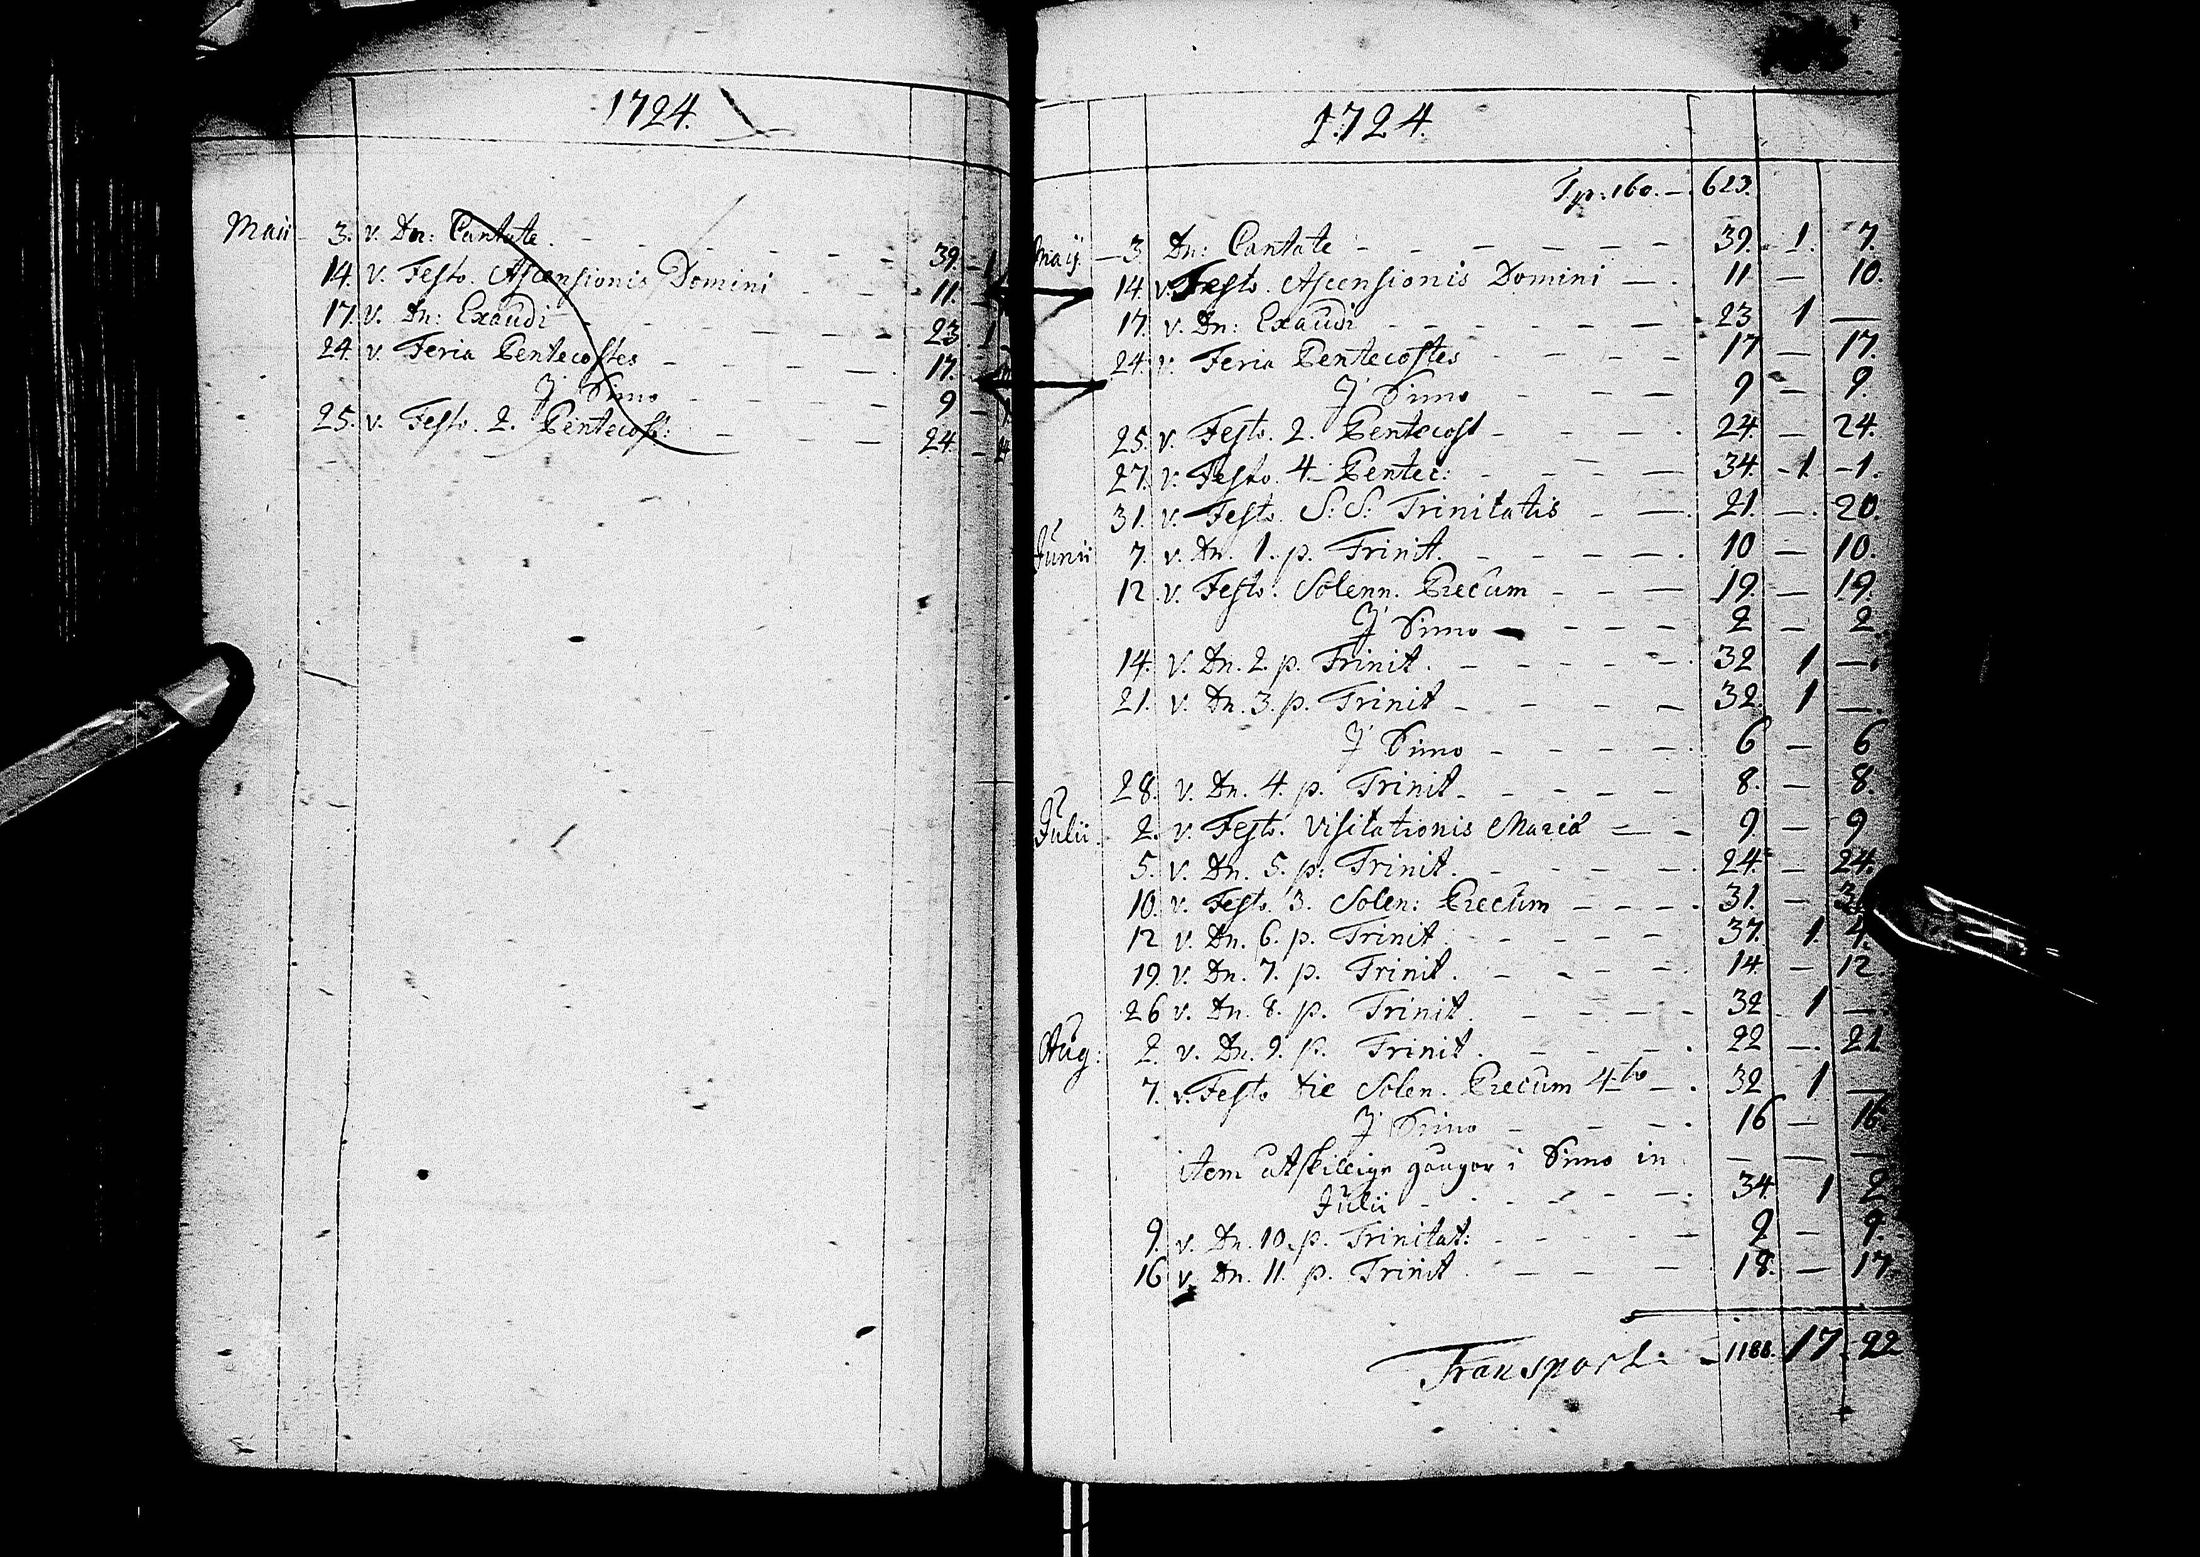 1724.
Maii 3. v. Dn: Cantate. - - - - - - 39. - 1
14. v. Festo. Ascensionis Domini - - - 11. -
17. v. Dn: Exaudi - - - - - 23. 1
24. v. Feria Pentecostes - - - - - 17. -
J Simo - - - - 9 -
25. v. Festo. 2. Pentecost: - - - 24. -
1724.
Tp: 160. - 623.
Maij - 3. Dn: Cantate - - - - - - 39. 1. 7.
14. v. Festo. Ascensionis Domini - . 11 - 10.
17. v. Dn: Exaudi - - - - - - 23 1 -
24. v. Feria Pentecostes - - - - 17 - 17.
J Simo - - - - 9 - 9.
25. v. Festo. 2. Pentecost - - - . 24. - 24.
27. v. Festo. 4. Pentec: - - - - 34. - 1 - 1.
31. v. Festo. S: S: Trinitatis - - . 21. - . 20.
Junii 7. v. Dn. 1. p. Trinit. - - - - - . 10 - 10.
12 v. Festo. Solenn. Precum - - - 19. - 19.
J Simo - - - - 2 - 2.
14. v. Dn. 2. p. Trinit. - - - - - . 32 1 - .
21. v. Dn. 3. p. Trinit - - - - - 32. 1 - .
J Simo - - - - . 6 - 6
28. v. Dn. 4. p. Trinit - - - - - 8. - 8.
Julii. 2. v. Festo. Visitationis Mariæ - - 9. - 9
5. v. Dn. 5. p: Trinit. - - - - - . 24. - 24.
10. v. Festo. 3. Solen: Precum - - - . 31. -
12 v. Dn. 6. p. Trinit. - - - - 37. 1. 4.
19. v. Dn. 7. p. Trinit. - - - - . 14. - 12
26 v. Dn. 8. p. Trinit. - - - - 32 1 -
Aug: 2. v. Dn. 9. p. Trinit. - - - - . 22 - . 21
7. v. Festo die Solen. Precum 4to - . 32 1 -
J Simo - - - - . 16 - 16.
item åtskillige gångor i Simo in - - -
Julii - - - - - - . 34 1 2
9. v. Dn. 10. p. Trinitat: - - - - - 9 - 9.
16 v. Dn. 11. p. Trinit - - - - 18. - 17.
Transport: - 1188. 17. 22